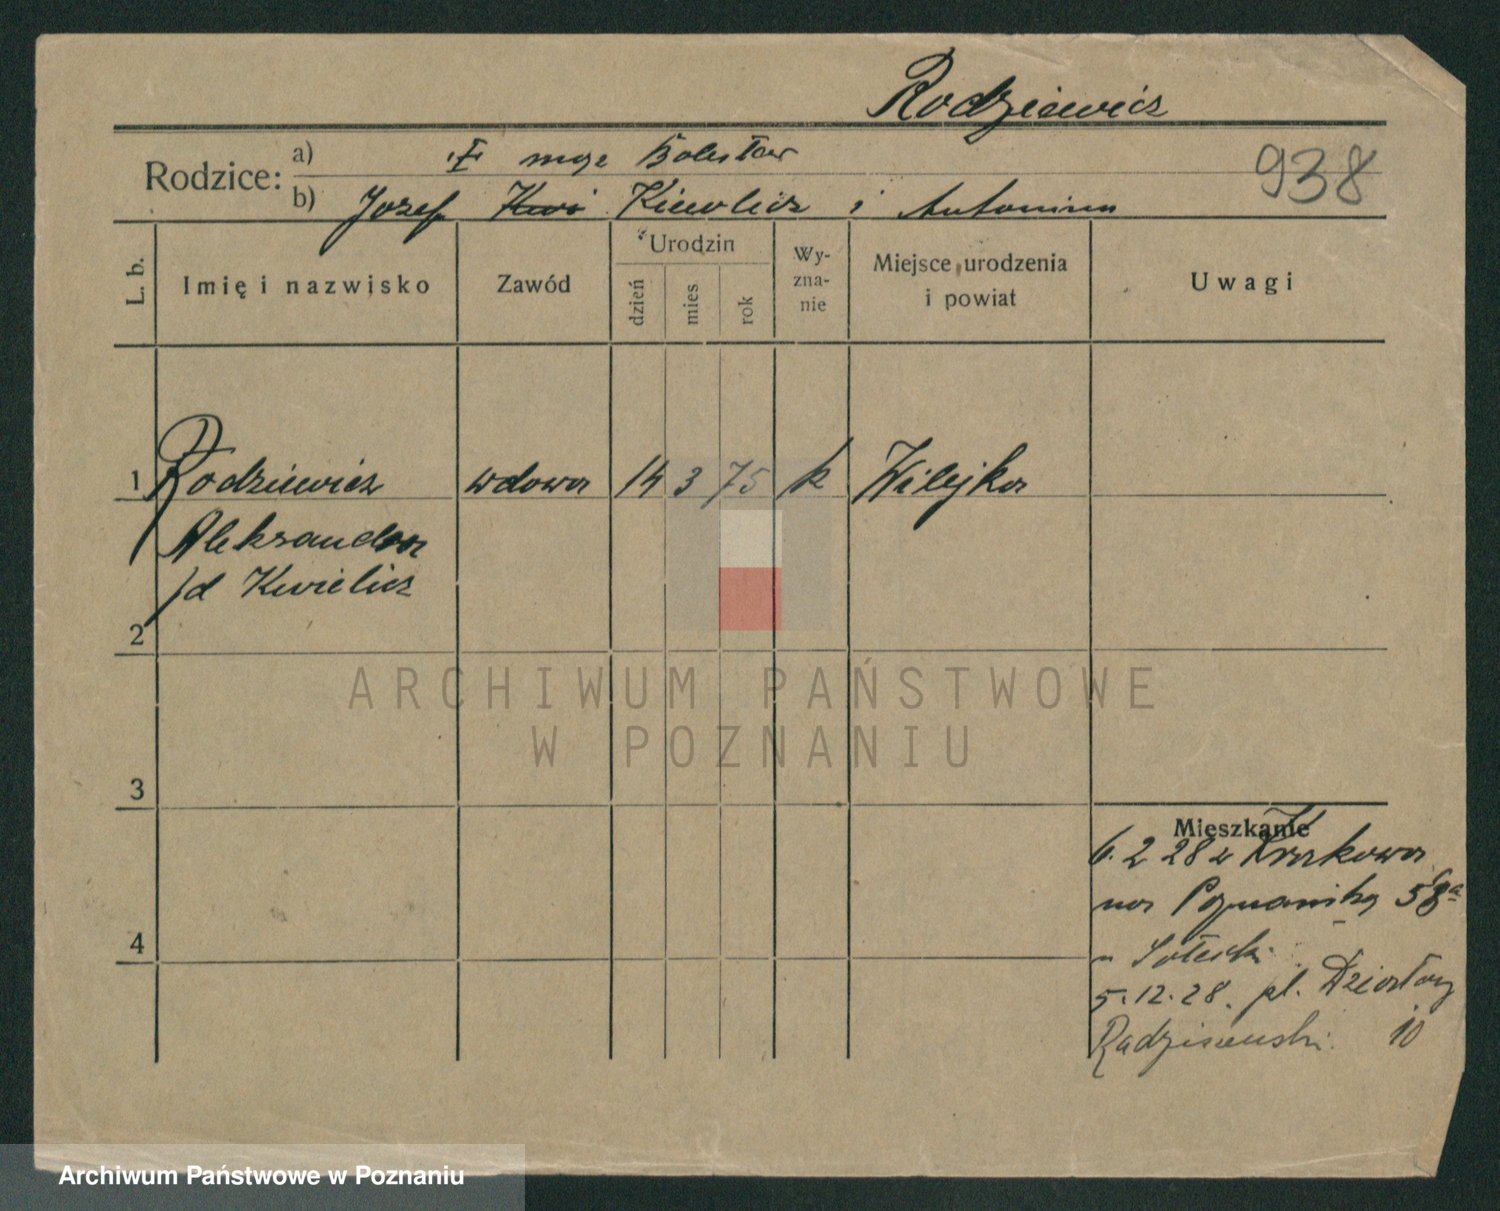 Rodziewicz
Rodzice:
a) I mąż Bolesław
938
b) Józef Kwi Kiewlicz i Antonina
L. b.
Imię i nazwisko
Zawód
Urodzin
dzień
mies
rok
Wy-
zna-
nie
Miejsce urodzenia
i powiat
Uwagi
1 Rodziewicz wdowa 14 3 75 k Wilejka
Aleksandra
/d Kwielicz
2
3
4
Mieszkanie
6. 2 28 z Krakowa
na Poznańska 58a
Sołecki
5.12.28. pl. Działowy
Radziszewski. 10
ARCHIWUM PAŃSTWOWE
W POZNANIU
Archiwum Państwowe w Poznaniu